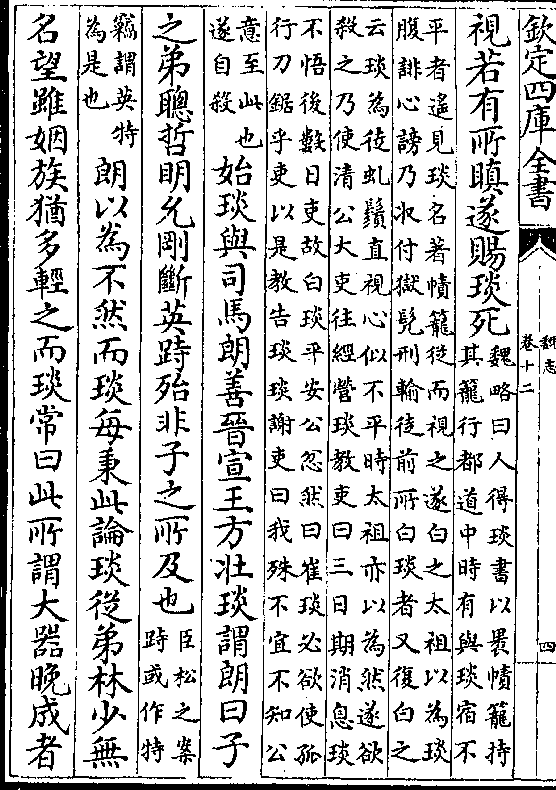 欽定四庫全書
魏志
卷十二
四
視若有所瞋遂賜琰死
魏略曰人得琰書以褁幘籠持
其籠行都道中時有與琰宿不
平者遙見琰名著幘籠從而視之遂白之太祖以為琰
腹誹心謗乃收付獄髠刑輸徒前所白琰者又復白之
云琰為徒虬鬚直視心似不平時太祖亦以為然遂欲
殺之乃使清公大吏往經營琰教吏曰三日期消息琰
不悟後數日吏故白琰平安公忽然曰崔琰必欲使孤
行刀鋸乎吏以是教告琰琰謝吏曰我殊不宜不知公
意至此也
遂自殺
始琰與司馬朗善晉宣王方壯琰謂朗曰子
之弟聰哲明允剛斷英跱殆非子之所及也
臣松之案
跱或作特
竊謂英特
為是也
朗以為不然而琰每秉此論琰從弟林少無
名望雖姻族猶多輕之而琰常曰此所謂大器晚成者